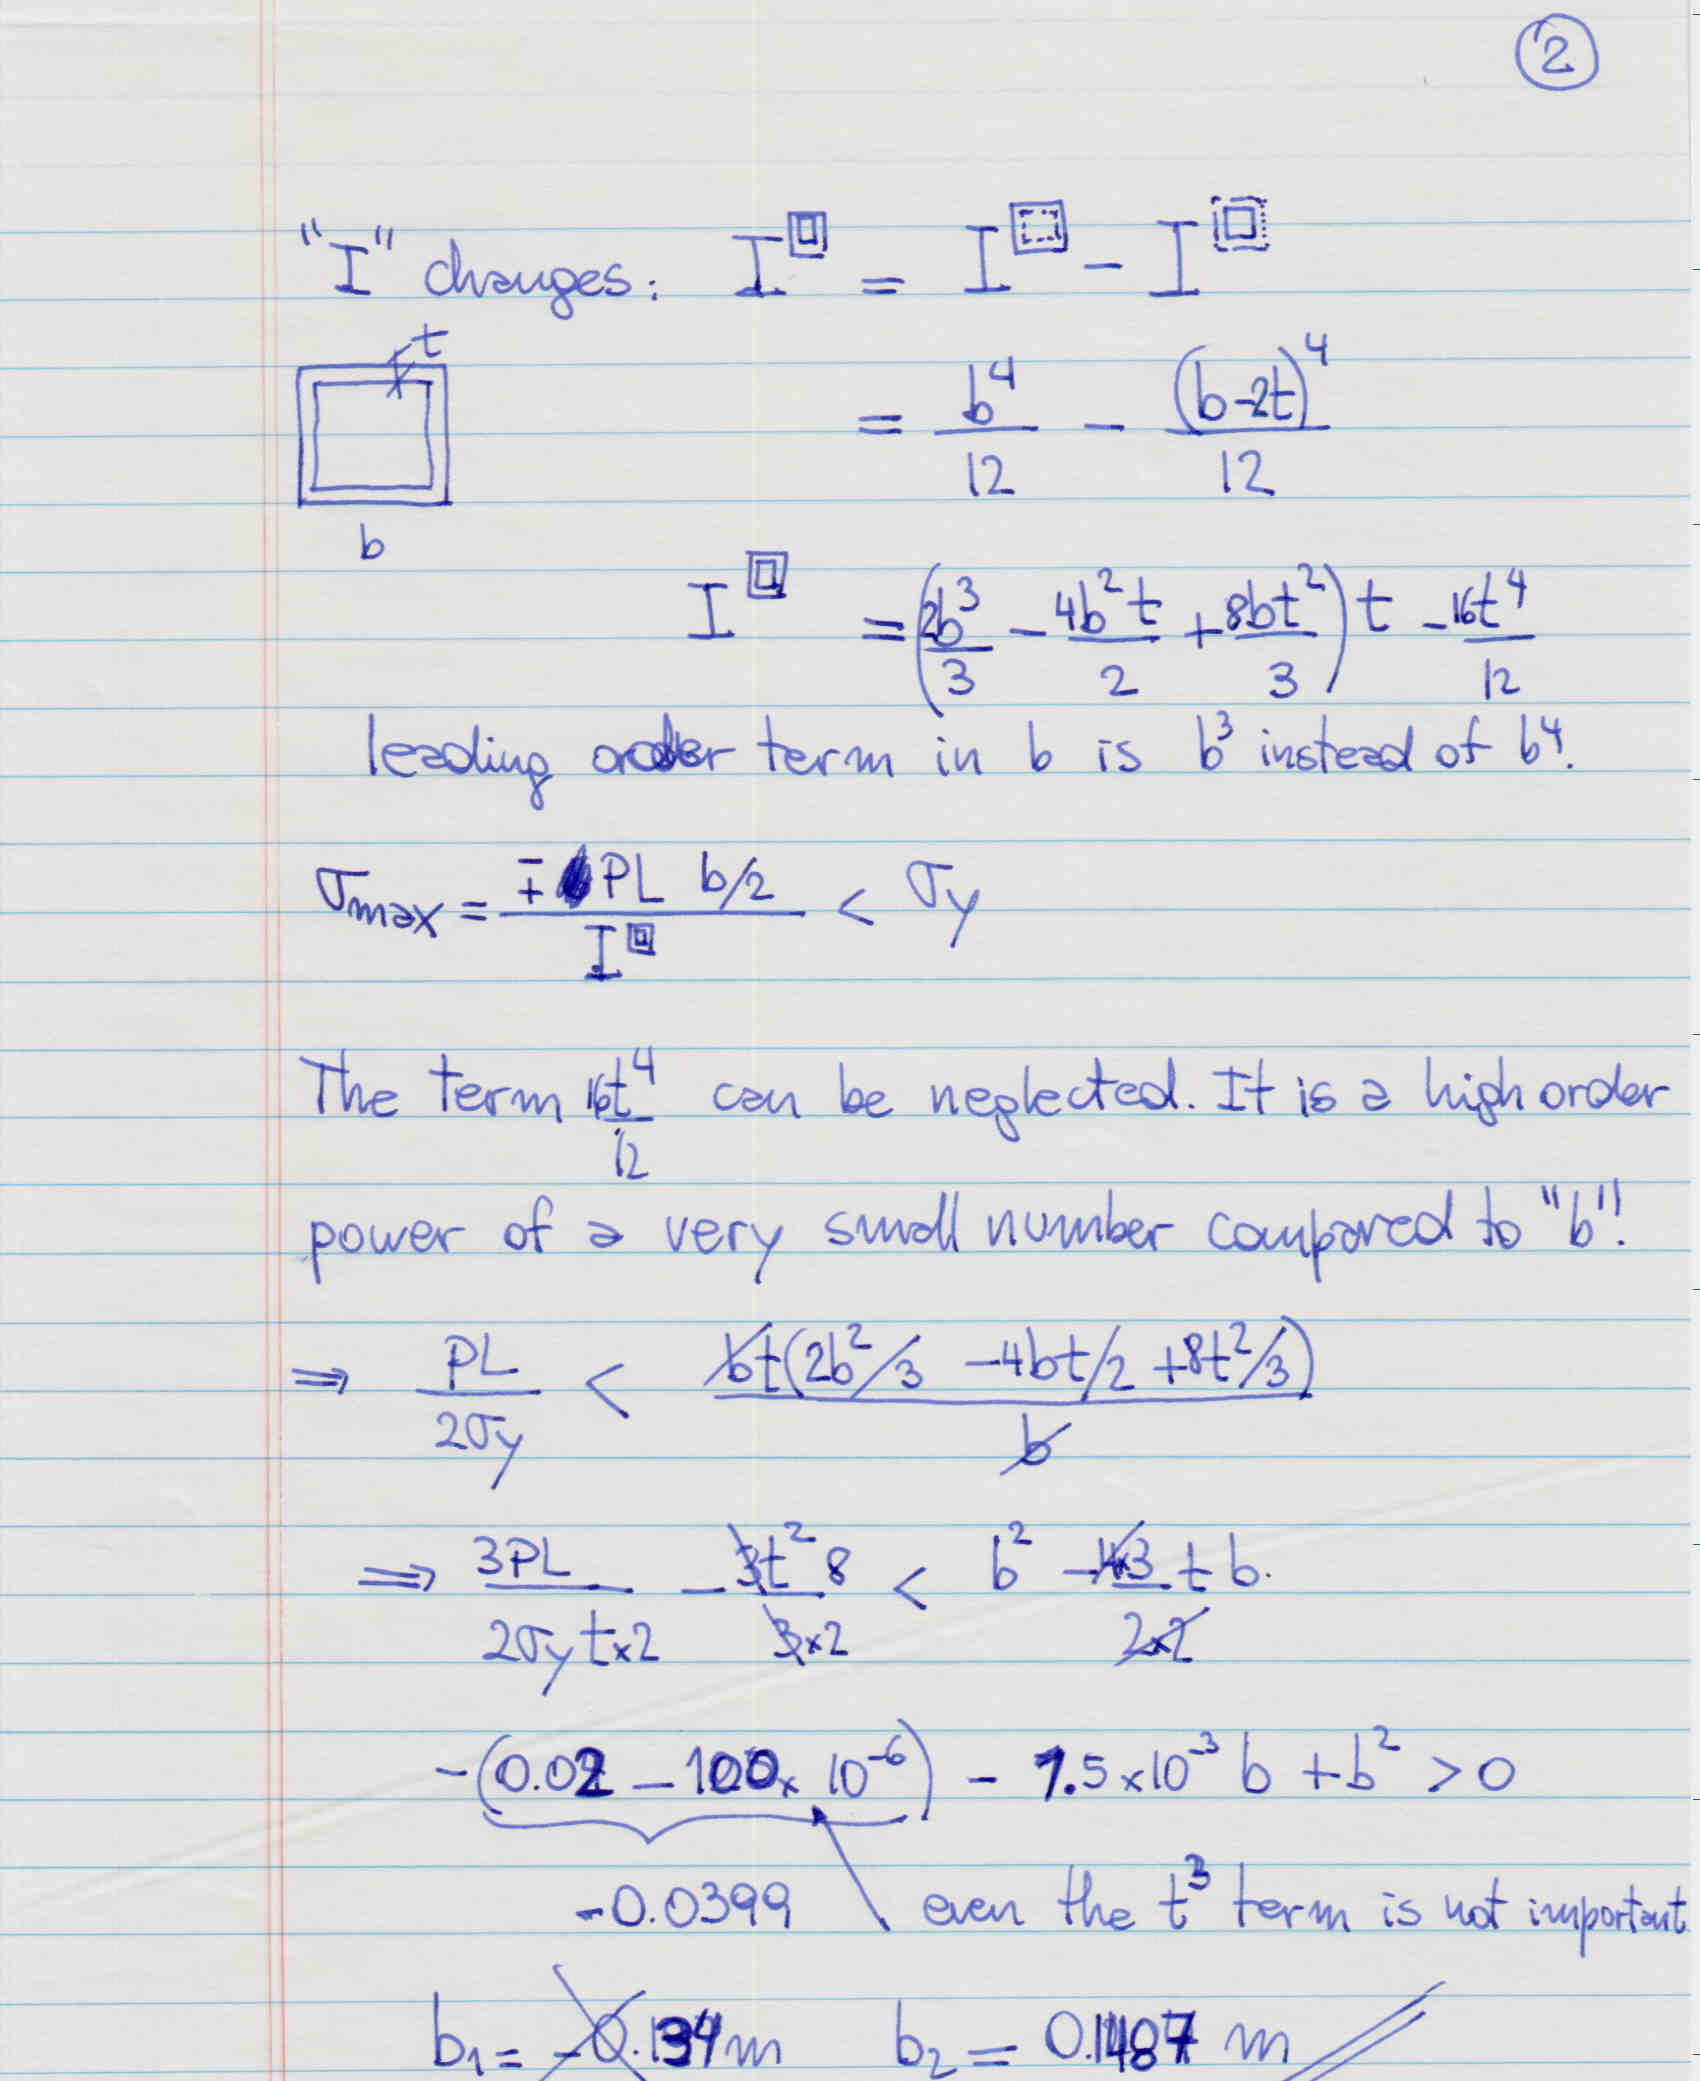 2
"I" changes: I = I - I
t
= b⁴/12 - (b-2t)⁴/12
b
I = (2b³/3 - 4b²t/2 + 8bt²/3) t - 16t⁴/12
leading order term in b is b³ instead of b⁴.
σmax = ∓ PL b/2 / I < σy
The term 16t⁴/12 can be neglected. It is a high order
power of a very small number compared to "b"!
⇒ PL/2σy < bt(2b²/3 - 4bt/2 + 8t²/3)/b
⇒ 3PL/2σy t×2 - 3t²8/3×2 < b² - 4×3/2×2 t b.
-(0.02 - 100× 10⁻⁶) - 7.5×10⁻³ b + b² > 0
-0.0399 even the t³ term is not important
b₁ = -0.134m b₂ = 0.1487 m